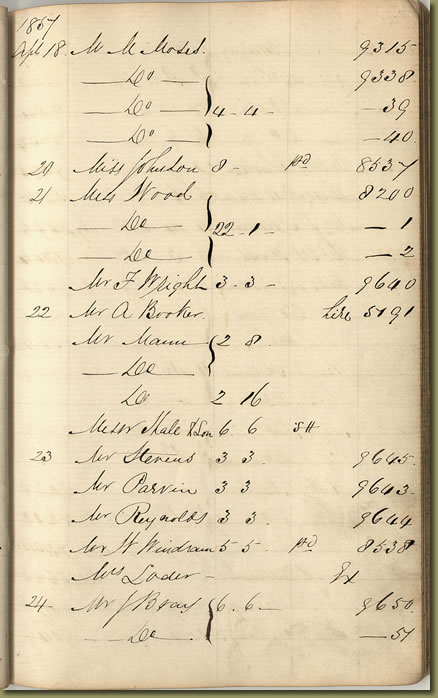 1857
Apl 18. Mr M Moses. 9315
— Do — 9338
— Do — 4 - 4 - — 39
— Do — — 40
20 Miss Johnson 8 - pd 8537
21 Miss Wood 8200
— Do — 22 - 1 - — 1
— Do — — 2
Mr F Wright 3 - 3 - 9640
22 Mr A Booker. Hire 5191
Mr Mann 2 8
— Do —
Do 2 16
Messr Hale & Son 6. 6 SH
23 Mr Stevens 3 3 - 9645
Mr Parvin 3 3 9643
Mr Reynolds 3 3. 9644
Mr H Windram 5 5 - pd 8538
Mrs Loder - Ex
24 - Mr J Bray 6. 6 - 9650
— Do — — 51